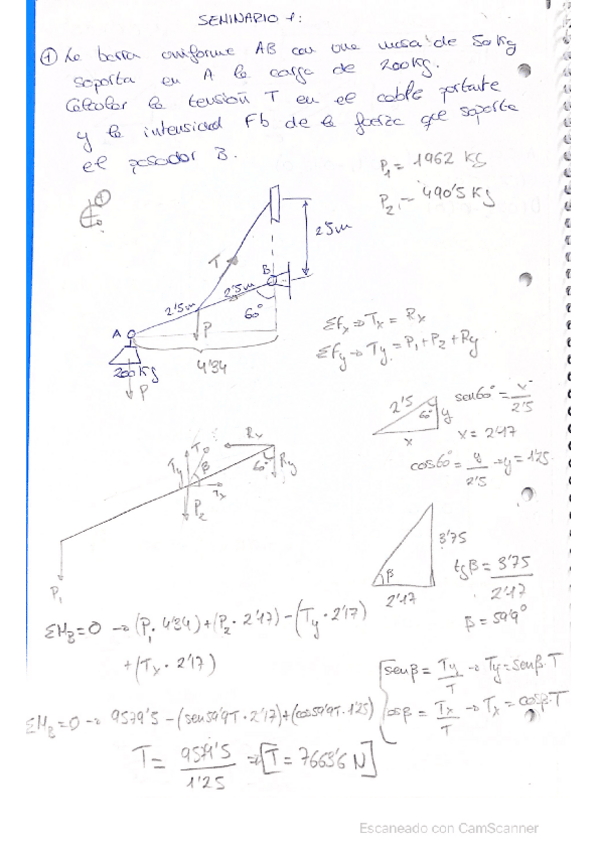 SEMINARIO 1:
① La barra uniforme AB con una masa de 50 kg
soporta en A la carga de 200 kg.
Calcular la tensión T en el cable portante
y la intensidad Fb de la fuerza que soporta
el pasador B.
P₁ = 1962 KG
P₂ = 490'5 KG
2'5m
T
B
2'5m
2'5m
60°
A
P
200 Kg
P
4'34
ΣFx → Tx = Rx
ΣFy → Ty = P₁ + P₂ + Ry
2'5
60°
y
x
sen60° = x/2'5
x = 2'17
cos60° = y/2'5 → y = 1'25
Rx
60°
Ry
Ty
T
β
Tx
P₂
P₁
3'75
β
2'17
tgβ = 3'75/2'17
β = 59'9°
ΣM_B = 0 → (P₁ · 4'34) + (P₂ · 2'17) - (Ty · 2'17)
+ (Tx · 2'17)
senβ = Ty/T → Ty = senβ · T
cosβ = Tx/T → Tx = cosβ · T
ΣM_B = 0 → 9579'5 - (sen59'9T · 2'17) + (cos59'9T · 1'25)
T = 9579'5/1'25 ⇒ [T = 7663'6 N]
Escaneado con CamScanner